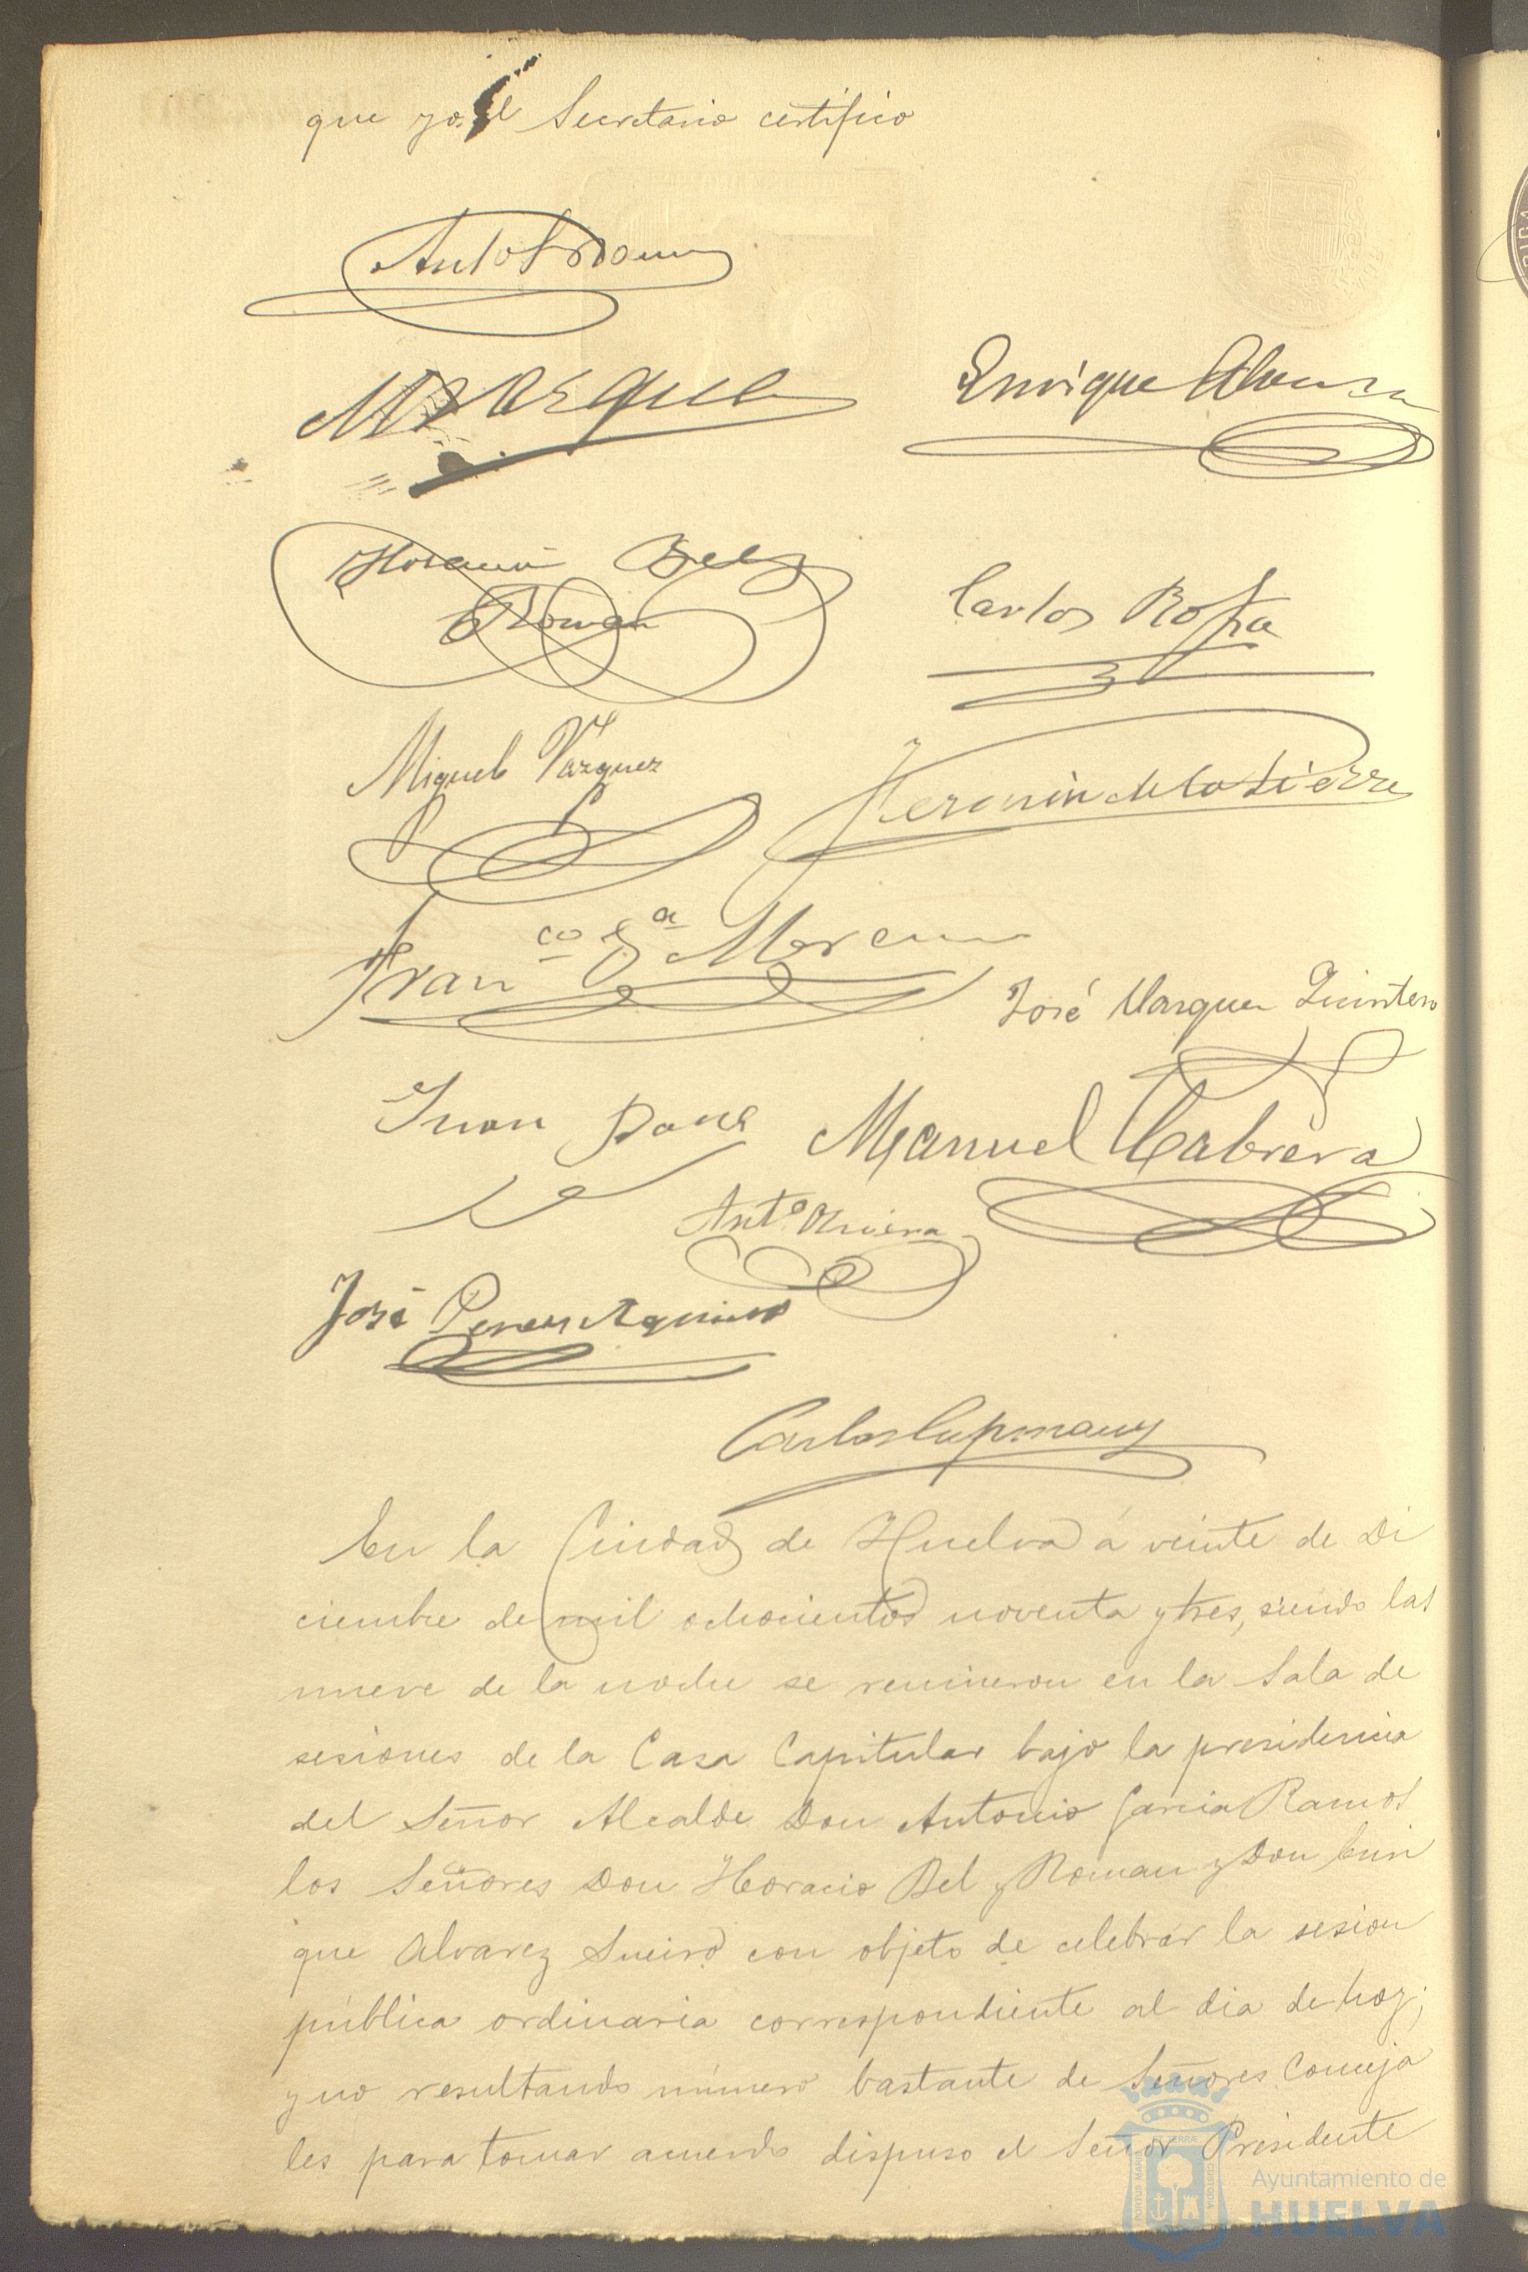 que yo el Secretario certifico
Enrique Alvarez
Horacio Bel
y Roman
Carlos Rofa
Miguel Vazquez
Fermin de la Sierra
Fran co G a Moreno
José Marquez Quintero
Juan
Manuel Cabrera
Ant o Rivera
José Perez
Carlos Capmany
En la Ciudad de Huelva á veinte de Di
ciembre de mil ochocientos noventa y tres, siendo las
nueve de la noche se reunieron en la Sala de
sesiones de la Casa Capitular bajo la presidencia
del Señor Alcalde Don Antonio Garcia Ramos
los Señores Don Horacio Bel y Roman y Don Enri
que Alvarez Sueiro con objeto de celebrar la sesion
pública ordinaria correspondiente al dia de hoy;
y no resultando número bastante de Señores Conceja
les para tomar acuerdo dispuso el Señor Presidente
Ayuntamiento de
HUELVA